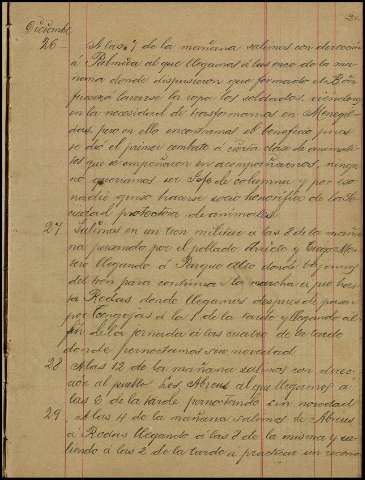 Diciembre
26 A las 7 de la mañana salimos con dirección
á Palmira al que llegamos á las once de la ma-
ñana donde dispusieron que formado el Bón
fuese á lavarse la ropa los soldados, viéndonos
en la necesidad de trasformarnos en
das, pero en ello encontramos el beneficio pues
se dió el primer combate á cierta clase de animali-
tos que se empeñaron en acompañarnos, ning
queriamos ser Jefe de columna y por eso
nadie quiso hacerse socio honorífico de la So-
ciedad protectora de animales.
27 Salimos en un tren militar a las 8 de la maña-
na pasando por el poblado Arriete y Ciego Mon-
tero llegando á Parque Alto donde bajamos
del tren para continuar la marcha á pié has-
ta Rodas donde llegamos despues de pasar
por Congojas á la 1 de la tarde y llegando al
fin de la jornada á las cuatro de la tarde
donde pernoctamos sin novedad
28 A las 12 de la mañana salimos con direc-
ción al pueblo Los Abreus al que llegamos á
las 6 de la tarde pernoctando sin novedad
29 A las 4 de la mañana salimos de Abreus
á Rodas llegando á las 8 de la misma y sa-
liendo á las 2 de la tarde a practicar un recono